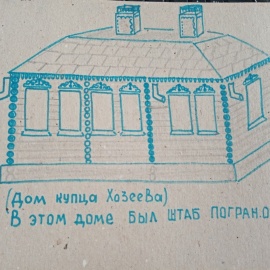 (Дом купца Хозеева)
В этом доме был штаб погран.о